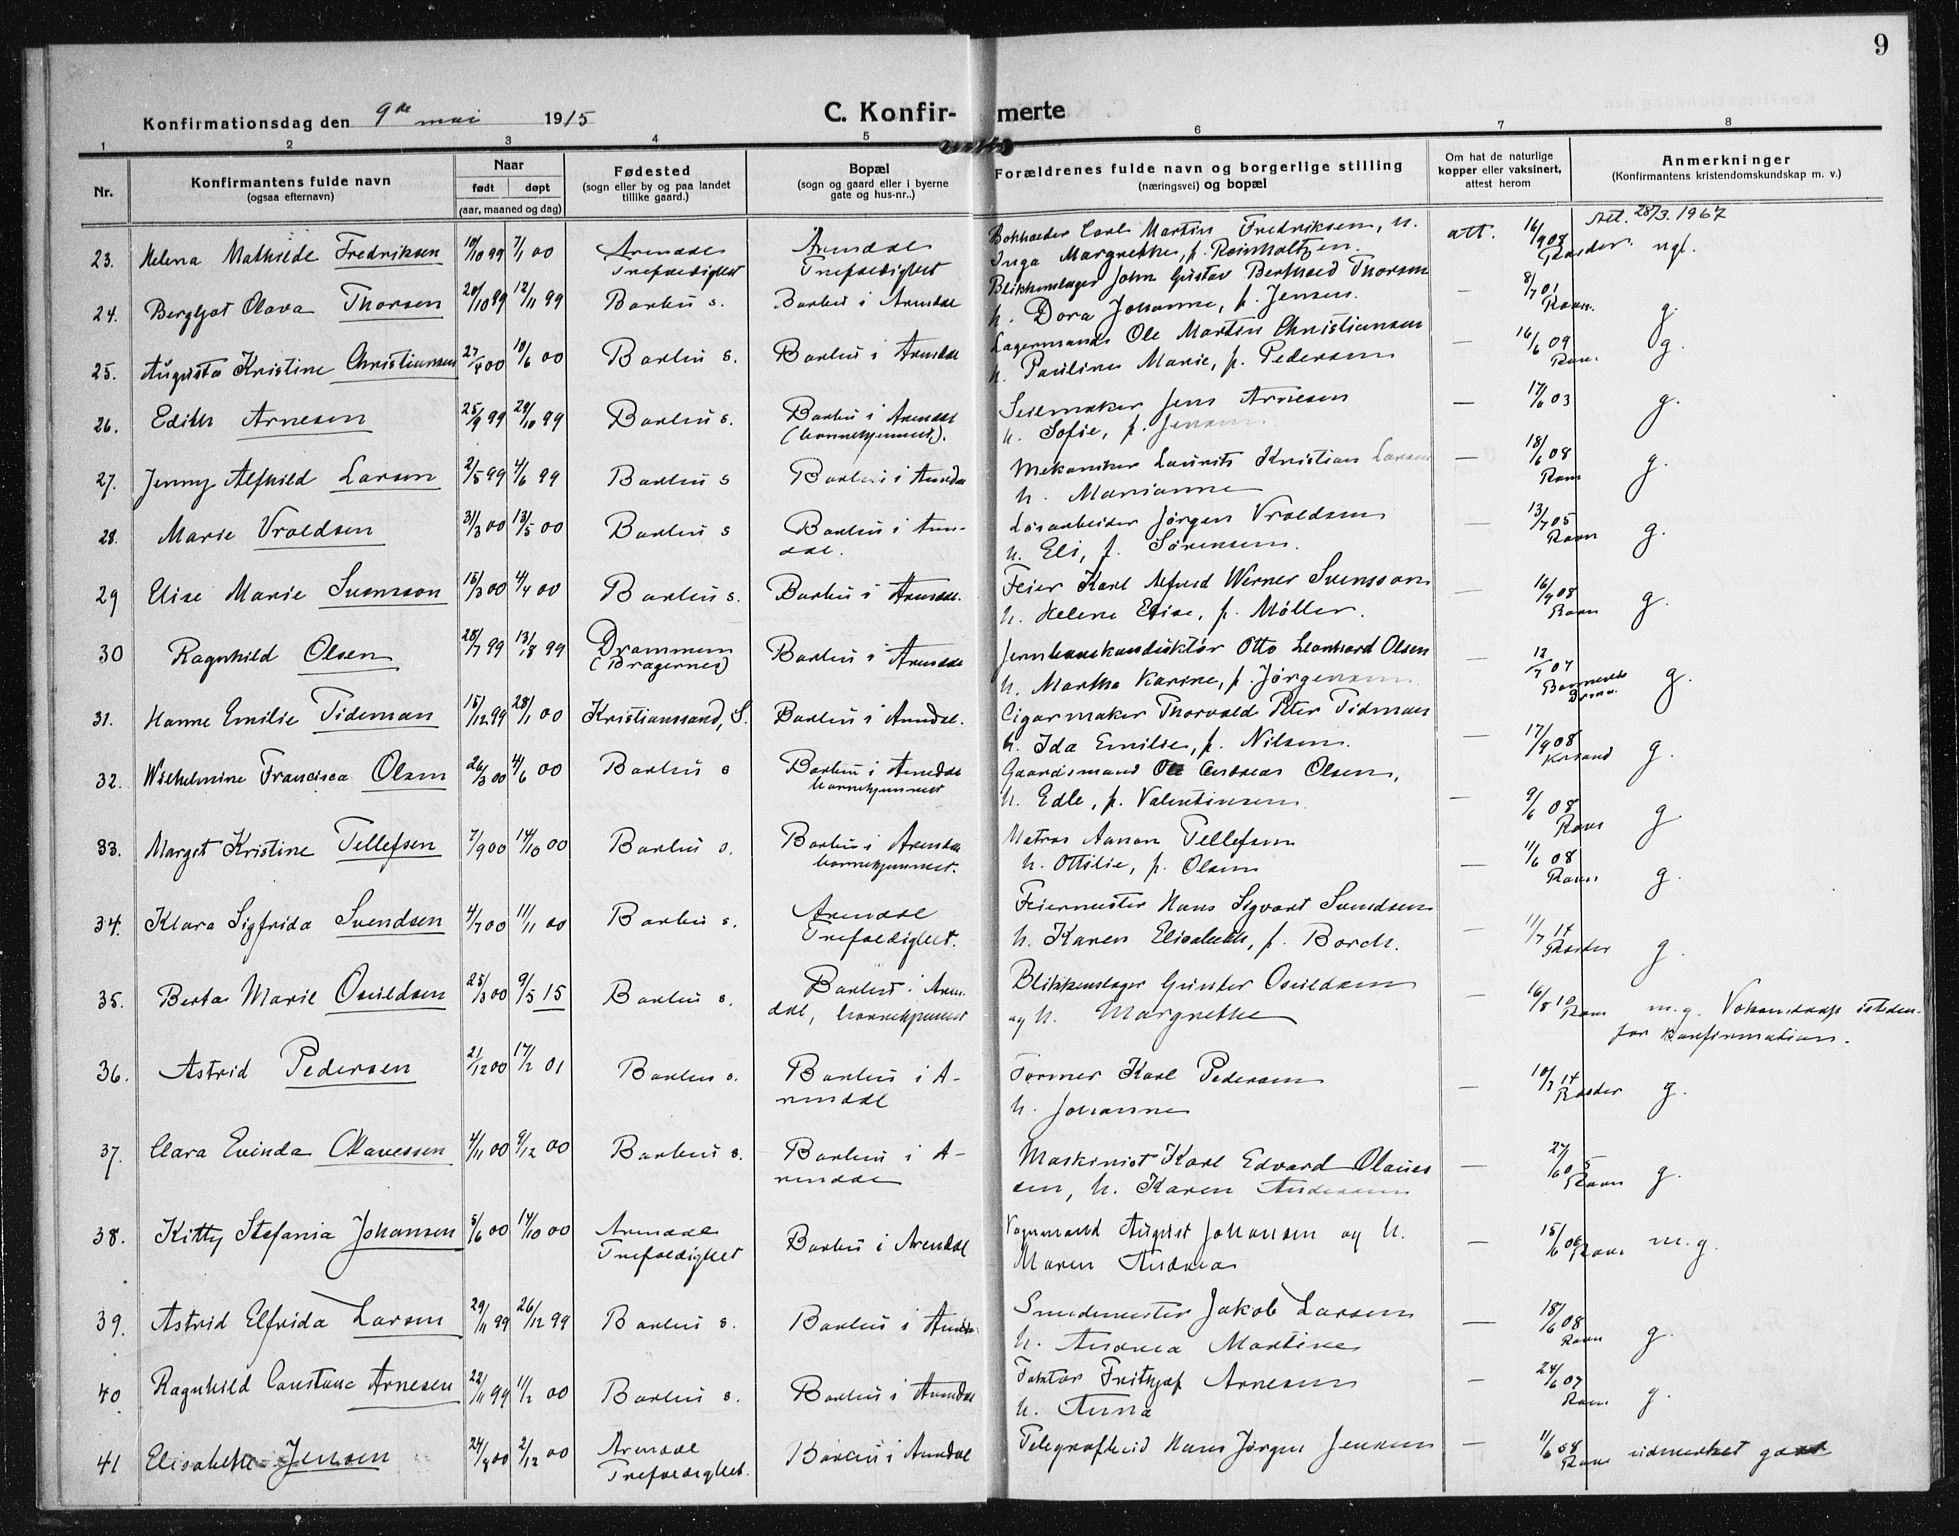 9
Konfirmationsdag den 9de mai 1915
C. Konfir- merte
1 2 3 4 5 6 7 8
Nr.
Konfirmantens fulde navn
(ogsaa efternavn)
Naar
født døpt
(aar, maaned og dag)
Fødested
(sogn eller by og paa landet
tillike gaard.)
Bopæl
(sogn og gaard eller i byerne
gate og hus-nr..)
Forældrenes fulde navn og borgerlige stilling
(næringsvei) og bopæl
Om hat de naturlige
kopper eller vaksinert,
attest herom
Anmerkninger
(Konfirmantens kristendomskundskap m. v.)
Att. 28/3. 1967
23. Helena Mathilde Fredriksen 10/10 99 7/1 00 Arendal Arendal Bokholder Carl Martin Fredriksen, H. att. 16/9 08
Trefoldighet Trefoldighet Inga Margrethe, f. Reinholtzen. ngl.
24. Bergljot Olava Thorsen 20/10 99 12/11 99 Barbu s. Barbu i Arendal Blikkenslager John Gustav Berthold Thorsen — 8/7 01
H. Dora Johanne, f. Jensen. Ravn. g.
25. Augusta Kristine Christiansen 27/4 00 10/6 00 Barbu s. Barbu i Arendal Lagermand Ole Martin Christiansen — 16/6 09 g.
H. Pauline Marie, f. Pedersen Ravn
26. Edith Arnesen 25/9 99 29/10 99 Barbu s. Barbu i Arendal Seilmaker Jens Arnesen — 17/6 03 g.
(barnehjemmet). H. Sofie, f. Jensen
27. Jenny Alfhild Larsen 2/5 99 4/6 99 Barbu s Barbu i Arendal Mekaniker Laurits Kristian Larsen — 18/6 08 g.
H. Marianne Ravn
28. Marie Vroldsen 31/3 00 13/5 00 Barbu s Barbu i Aren- Løsarbeider Jørgen Vroldsen — 13/7 05 g.
dal. H. Eli, f. Sørensen. Ravn
29 Elise Marie Svensson 15/3 00 4/4 00 Barbu s. Barbu i Arendal. Feier Karl Alfred Werner Svensson — 16/9 08 g.
H. Helene Elise, f. Møller. Ravn
30 Ragnhild Olsen 28/7 99 13/8 99 Drammen Barbu i Arendal Jernbanekonduktør Otto Leonhard Olsen — 12/7 07 g.
(Bragernes) H. Martha Karine, f. Jørgensen
31. Hanne Emilie Tideman 15/12 99 28/1 00 Kristianssand, S. Barbu i Arendal. Cigarmaker Thorvald Peter Tidman 17/9 08 g.
H. Ida Emilie, f. Nilsen. Krsand
32. Wilhelmine Francisca Olsen 26/3 00 4/6 00 Barbu s Barbu i Arendal Gaardsmand Ole Andreas Olsen, — 9/6 08 g.
barnehjemmet H. Edle, f. Valentinsen Ravn
33. Marget Kristine Tellefsen 7/9 00 14/10 00 Barbu s. Barbu i Arendal Matros Aanon Tellefsen — 11/6 08 g.
barnehjemmet. H. Ottilie, f. Olsen Ravn
34. Klara Sigfrida Svendsen 4/7 00 11/11 00 Barbu s. Arendal Feiermester Hans Sigvart Svendsen — 11/7 14 g.
Trefoldighet. H. Karen Elisabeth, f. Borch.
35. Berta Marie Osuldsen 25/3 00 9/5 15 Barbu s. Barbu i Aren- Blikkenslager Gunder Osuldsen — 16/8 10 m.g. Voksendaap isteden-
dal, barnehjemmet og H. Margrethe Ravn for konfirmation.
36. Astrid Pedersen 21/12 00 17/2 01 Barbu s. Barbu i A- Former Karl Pedersen — 10/7 14 g.
rendal H. Johanne
37. Clara Evinda Olavessen 4/11 00 9/12 00 Barbu s. Barbu i A- Maskinist Karl Edvard Olaves — 27/6 05 g.
rendal sen, H. Karen Andersen Ravn
38. Kitty Stefania Johansen 5/6 00 14/10 00 Arendal Barbu i Arendal Vognmand August Johansen og H. — 15/6 06 m.g.
Trefoldighet Maren Andrea Ravn
39. Astrid Elfrida Larsen 29/11 99 26/12 99 Barbu s. Barbu i Arendal Smedemester Jakob Larsen — 18/6 08 g.
H. Andrea Martine Ravn
40 Ragnhild Constance Arnesen 22/11 99 11/2 00 Barbu s. Barbu i Arendal Faktor Frithjof Arnesen — 24/6 07 g.
H. Anna Ravn
41 Elisabeth Jensen 24/8 00 2/12 00 Arendal Barbu i Arendal Telegrafbud Hans Jørgen Jensen — 11/6 08 udmerket godt
Trefoldighet. Ravn